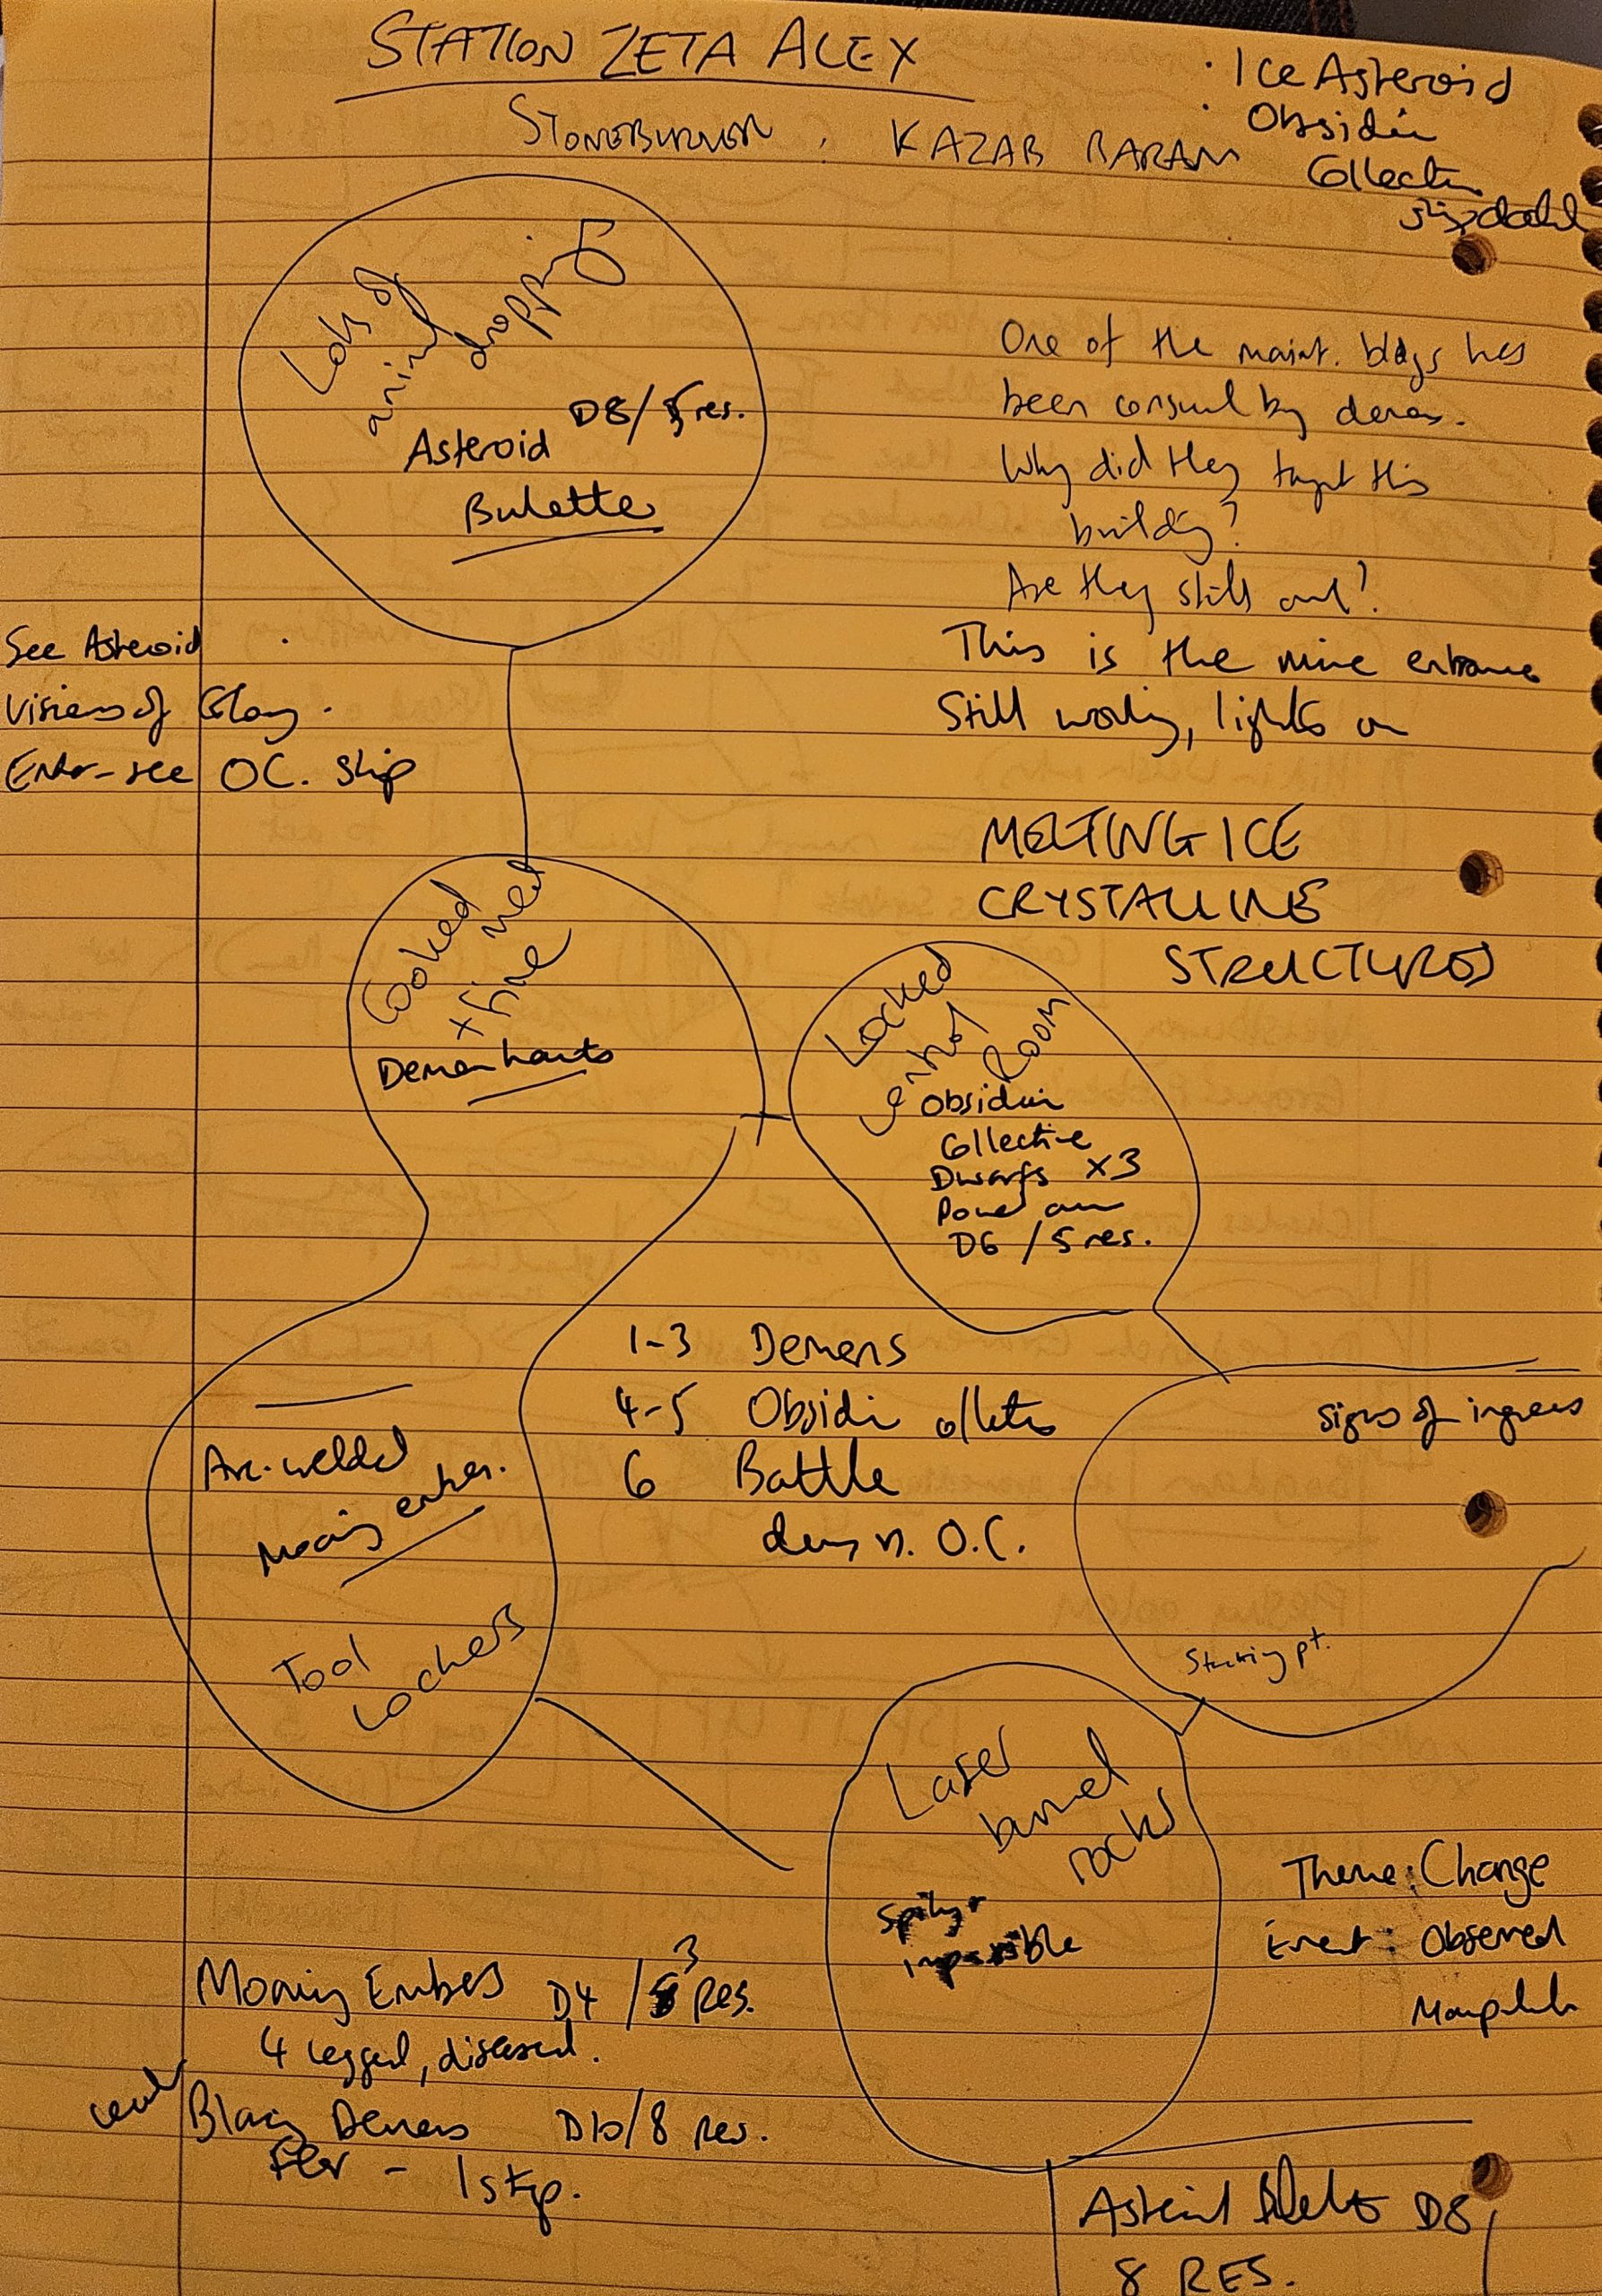 STATION ZETA ALEX
STONEBURNER, KAZAB BARAM
Ice Asteroid
Obsidian
Collective
ship docked
Lots of
animal
dropping
D8/5res.
Asteroid
Bulette
One of the maint. bldgs has
been consumed by demons.
Why did they target this
building?
Are they still around?
This is the mine entrance
Still working, lights on
See Asteroid
Visions of Glory.
Enter-see OC. ship
MELTING ICE
CRYSTALLINE
STRUCTURES
Cooked
meat
+ fire
Demon haunts
Locked
control
Room
Obsidian
Collective
Dwarfs x3
Power arm
D6 / 5res.
1-3 Demons
4-5 Obsidian
6 Battle
v. O.C.
Signs of ingress
Starting pt.
Arc-welded
Moaning embers.
Tool
Lockers
Laser
burned
rocks
Spiky +
impossible
Theme: Change
Event: Observed
Moaning Embers D4 / 3 Res.
4 legged, diseased.
Demons D10/8 Res.
Fear - 1 step.
Asteroid D8,
8 RES.